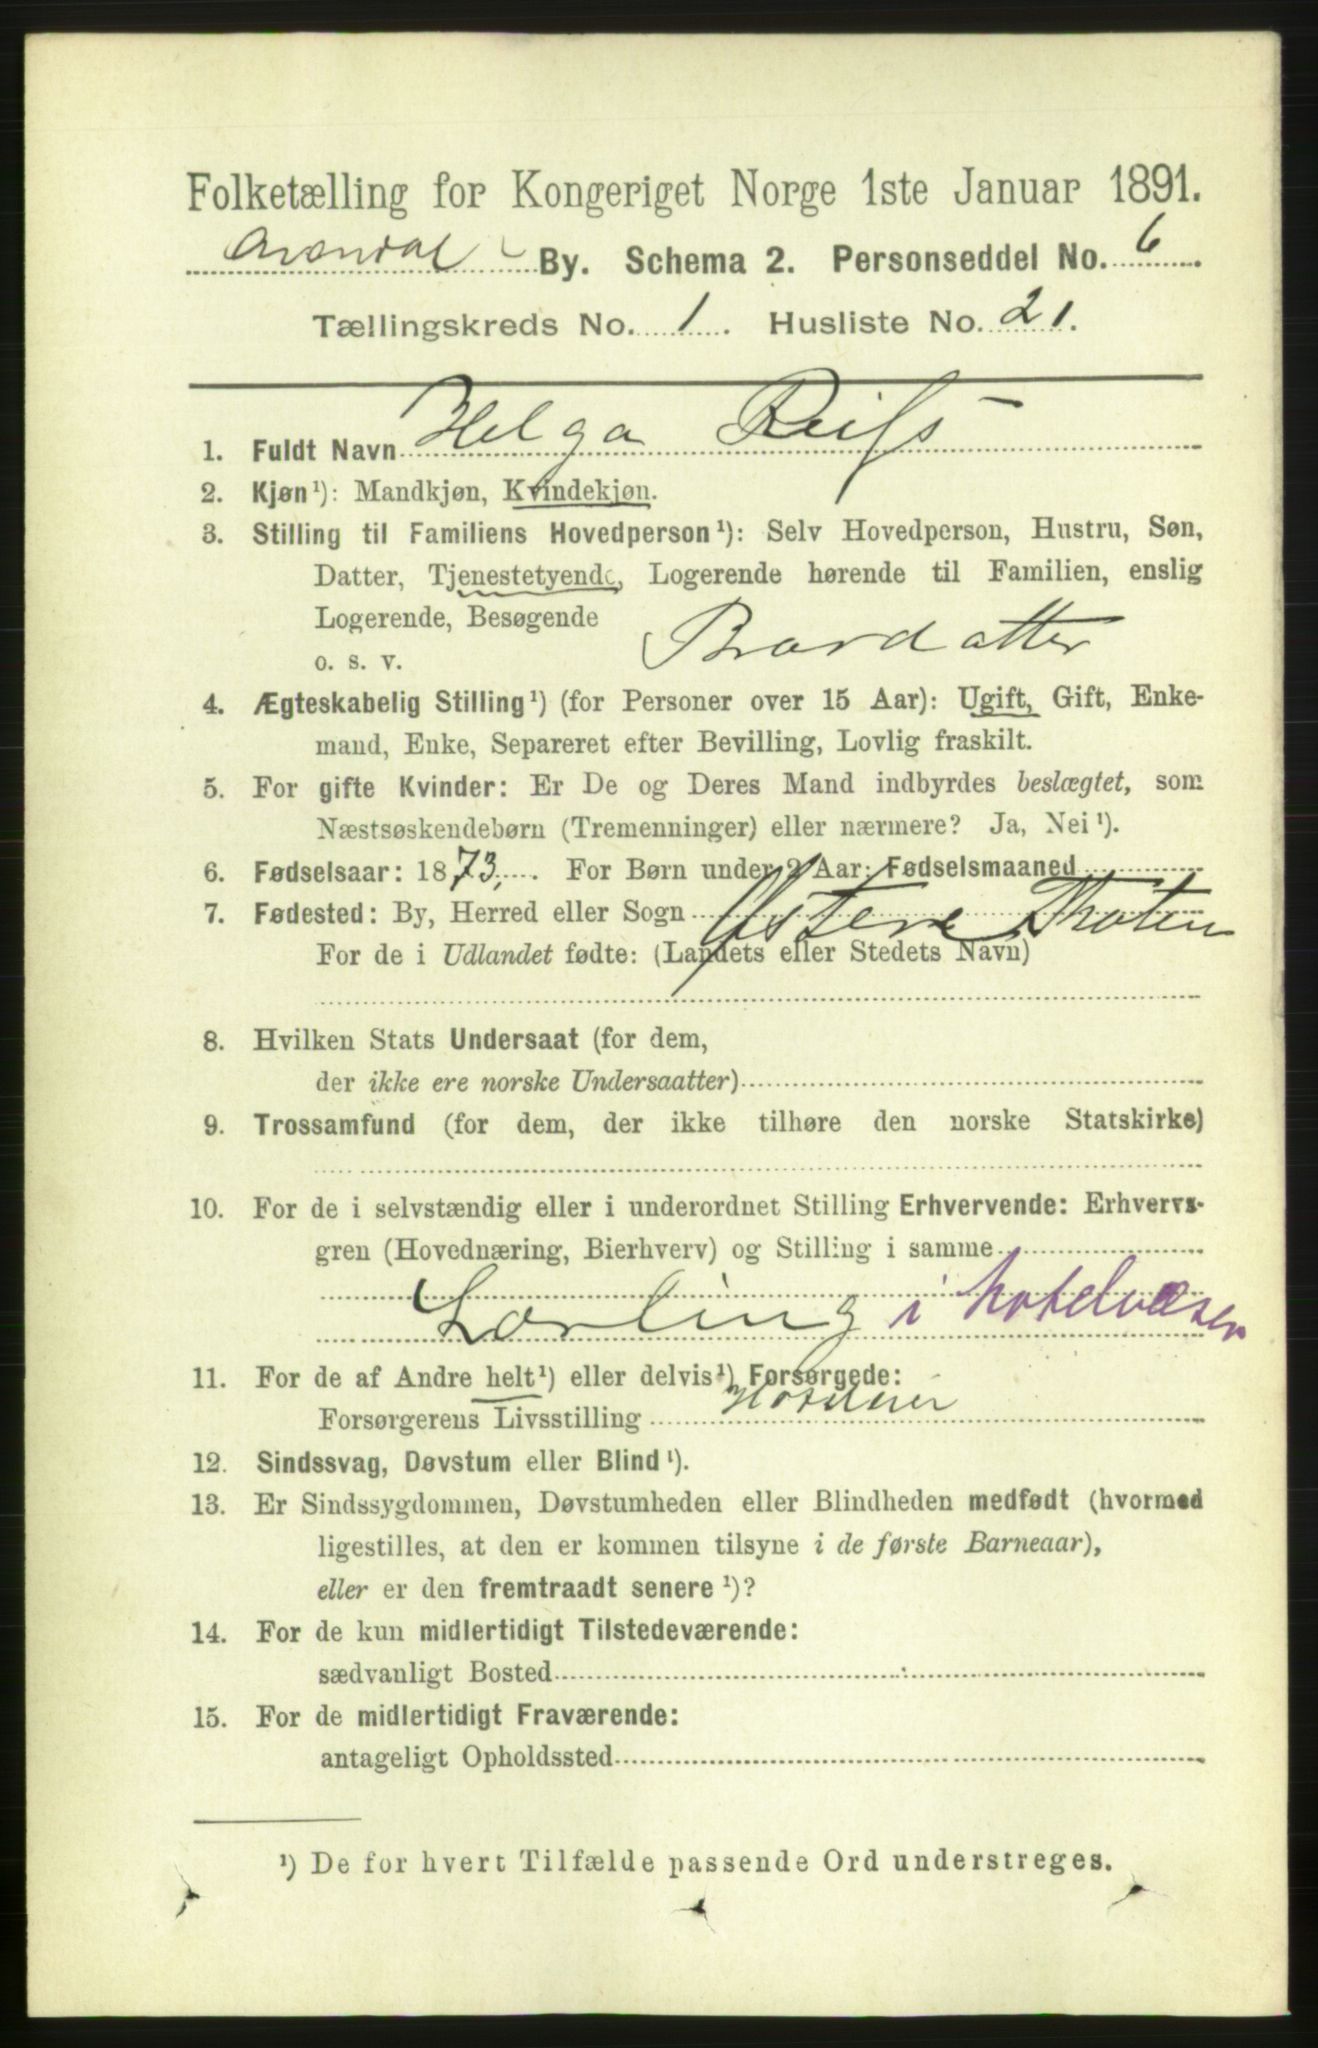 Folketælling for Kongeriget Norge 1ste Januar 1891.
Arendal By. Schema 2. Personseddel No. 6.
Tællingskreds No. 1. Husliste No. 21.
1. Fuldt Navn Helga Reifs
2. Kjøn¹): Mandkjøn, Kvindekjøn.
3. Stilling til Familiens Hovedperson¹): Selv Hovedperson, Hustru, Søn,
Datter, Tjenestetyende, Logerende hørende til Familien, enslig
Logerende, Besøgende
o. s. v. Brordatter
4. Ægteskabelig Stilling¹) (for Personer over 15 Aar): Ugift, Gift, Enke-
mand, Enke, Separeret efter Bevilling, Lovlig fraskilt.
5. For gifte Kvinder: Er De og Deres Mand indbyrdes beslægtet, som
Næstsøskendebørn (Tremenninger) eller nærmere? Ja, Nei¹).
6. Fødselsaar: 1873. For Børn under 2 Aar: Fødselsmaaned
7. Fødested: By, Herred eller Sogn Østere Thoten
For de i Udlandet fødte: (Landets eller Stedets Navn)
8. Hvilken Stats Undersaat (for dem,
der ikke ere norske Undersaatter)
9. Trossamfund (for dem, der ikke tilhøre den norske Statskirke)
10. For de i selvstændig eller i underordnet Stilling Erhvervende: Erhvervs-
gren (Hovednæring, Bierhverv) og Stilling i samme
Lærling i hotelvæsen
11. For de af Andre helt¹) eller delvis¹) Forsørgede:
Forsørgerens Livsstilling
12. Sindssvag, Døvstum eller Blind¹).
13. Er Sindssygdommen, Døvstumheden eller Blindheden medfødt (hvormed
ligestilles, at den er kommen tilsyne i de første Barneaar),
eller er den fremtraadt senere¹)?
14. For de kun midlertidigt Tilstedeværende:
sædvanligt Bosted
15. For de midlertidigt Fraværende:
antageligt Opholdssted
¹) De for hvert Tilfælde passende Ord understreges.